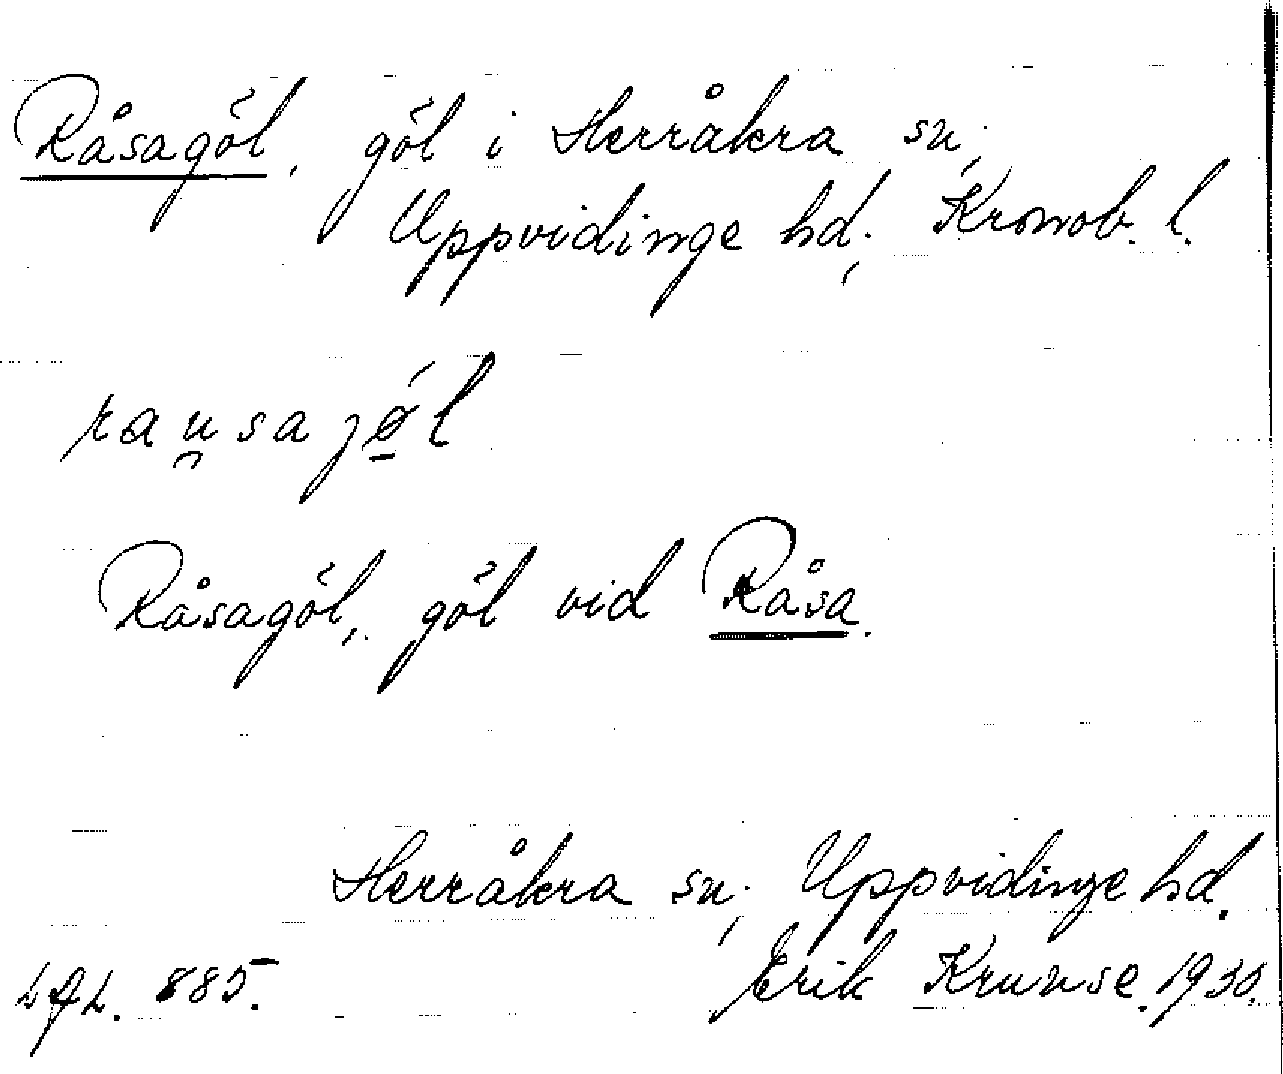 Råsagöl, göl i Herråkra sn,
Uppvidinge hd, Kronob. l.
rau̯sajǿ̲l
Råsagöl, göl vid Råsa.
Herråkra sn, Uppvidinge hd.
LAL. 885. Erik Kruuse. 1930.